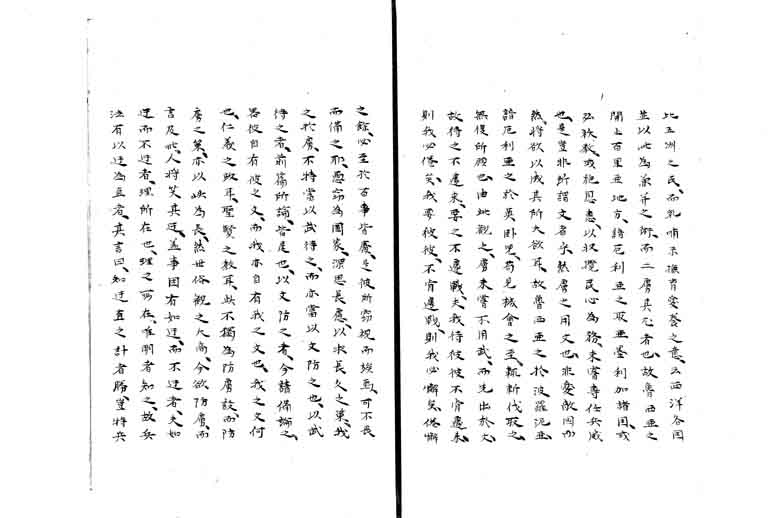 比五洲之民、而乳哺煦撫育愛養之意云西洋各国
並以此為兼并之術、而二虜其尤者也、故魯西亜之
開上百里亜地方、諳厄利亜之取亜墨利加諸国、或
弘秩教、或施恩恵以収攬民心為務、未嘗専任兵威
也、是豈非所謂文者乎、然虜之用文也、非愛敵国而
然将欲以成其所大欲耳、故魯西亜之於波羅泥亜
諳厄利亜之於莫臥児、苟見機会之至、輒新伐取之
無復所顧也、由此観之、虜未嘗不用武、而先出於文
故待之不遽来、要之不遽戦、夫我待彼、彼不肯遽来
則我必倦矣、我要彼、彼不肯遽戦、則我必懈矣、倦懈
之餘、必至於百事皆廃、是彼所窃視而竢焉、可不長
而備之耶、愚窃為国家、深思長慮、以求長久之策、我
之於虜、不特当以武待之、而亦当以文防之也、以武
待之者、前篇所論、皆是也、以文防之者、今請備論之、
蓋彼自有彼之文、而我亦自有我之文也、我之文何
也、仁義之政耳、聖賢之教耳、此不独為防虜設、而防
虜之策、亦以此為長、然世俗観之、今欲防虜、而
言及此、人将笑其迂、蓋事固有如迂、而不迂者、夫如
迂而不迂者、理所在也、理之所在、唯明者知之、故兵
法有以迂為直者、其言曰、知迂直之計者勝、豈特兵